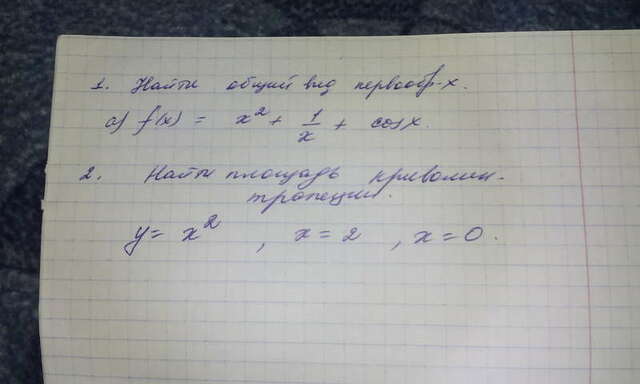 1. Найти общий вид первообр-х.
а) f(x) = x² + 1/x + cosx.
2. Найти площадь криволин.
трапеции.
y = x² , x = 2 , x = 0.